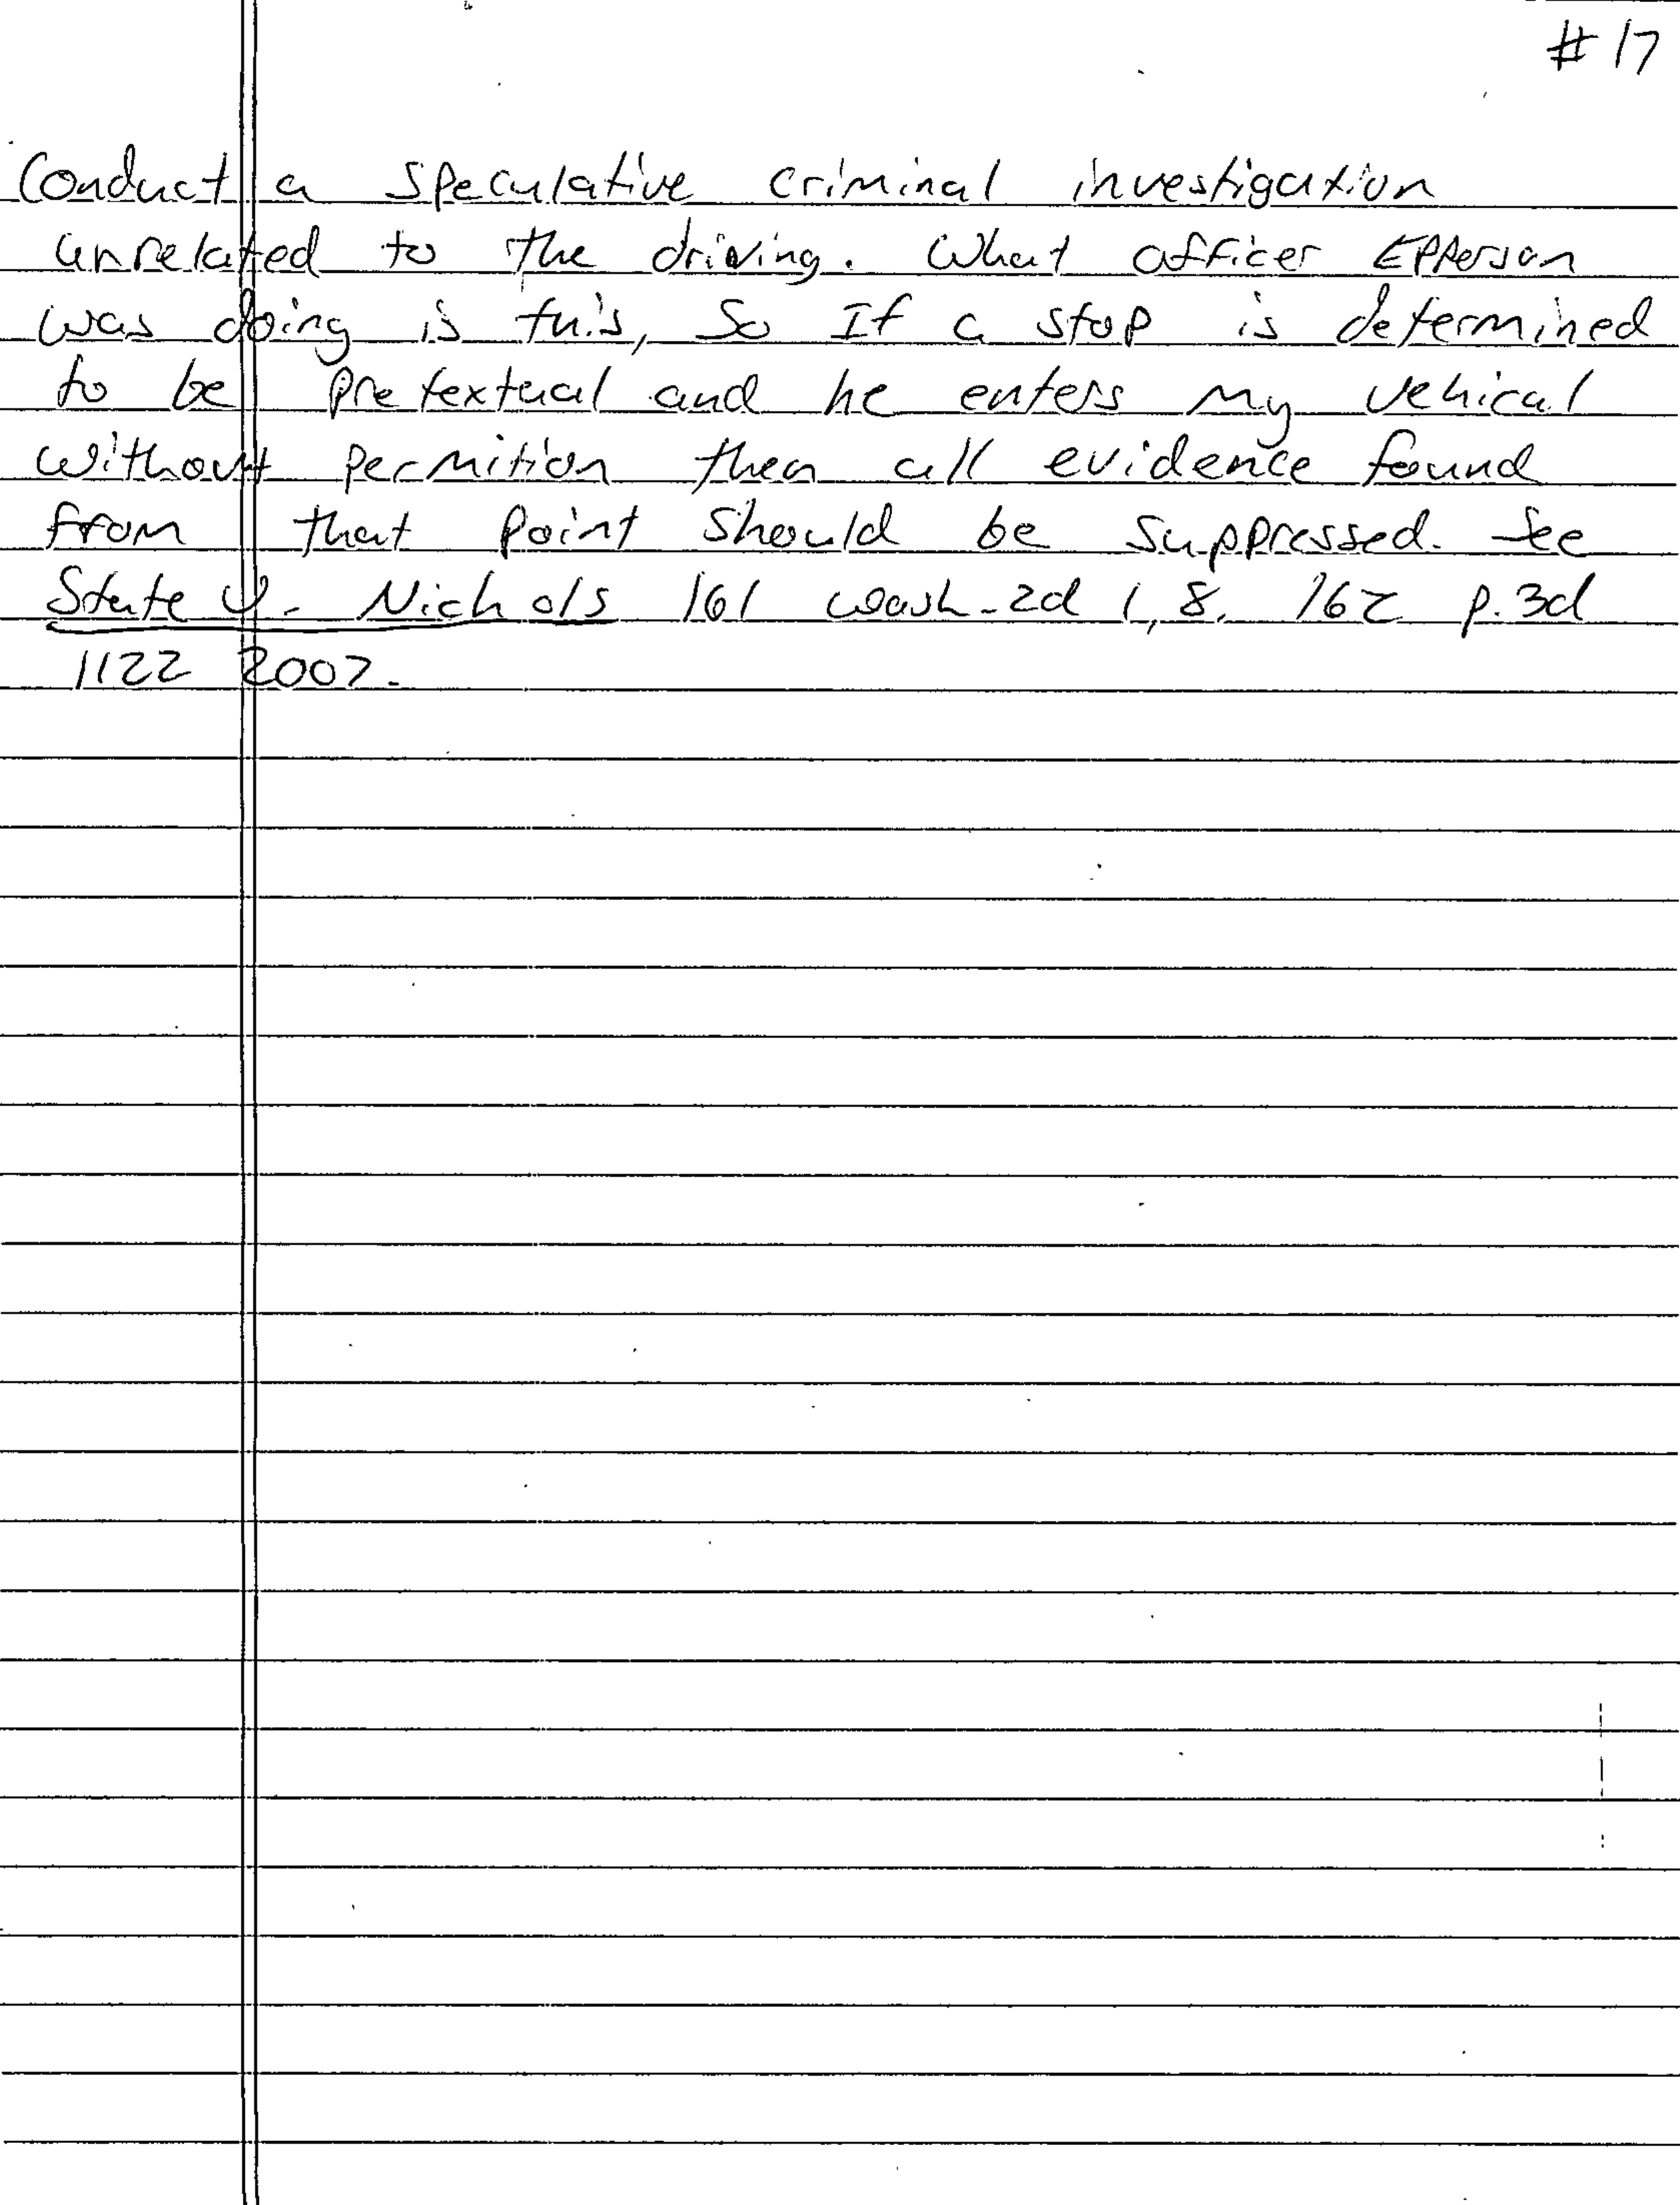 # 17
Conduct a speculative criminal investigation
unrelated to the driving. What officer Epperson
was doing is this, So If a stop is determined
to be pretextual and he enters my vehical
without permition then all evidence found
from that point should be suppressed. See
State v. Nichols 161 wash.2d 1, 8, 162 p.3d
1122 2007.